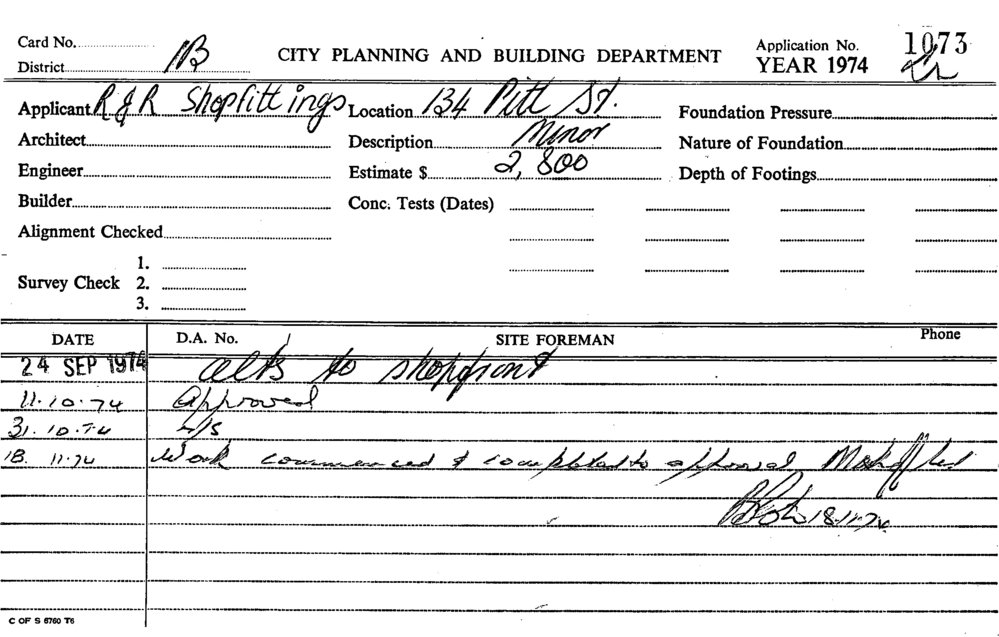 Card No. 1B CITY PLANNING AND BUILDING DEPARTMENT Application No. 1073
District YEAR 1974
Applicant R & R Shopfittings Location 134 Pitt St. Foundation Pressure
Architect Description Minor Nature of Foundation
Engineer Estimate $ 2,800 Depth of Footings
Builder Conc. Tests (Dates)
Alignment Checked
1.
Survey Check 2.
3.
DATE D.A. No. SITE FOREMAN Phone
24 SEP 1974 alts to shopfront
11.10.74 Approved
31.10.74 N/S
18.11.74 Work commenced & completed to approval
18.11.74
C OF S 6760 T6